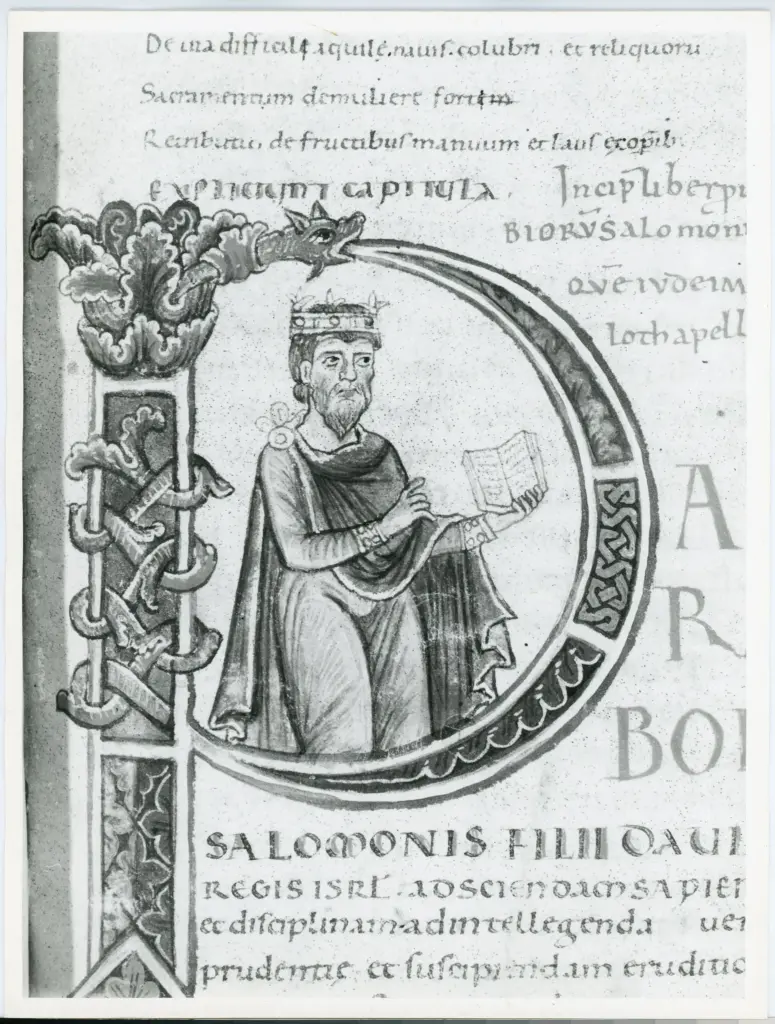 De uia difficili aquile. nauis. colubri. et reliquoru
Sacramentum demuliere fortem
Retributio, de fructibus manuum et laus ex opib.
EXPLICIUNT CAPITULA.
Incip liber p
BIORV SALOMON
QVE IVDEI M
loth apell
P
A
R
BO
SALOMONIS FILII DAVI
REGIS ISRL. ADSCIENDAM SAPIEN
et disciplinam. ad intellegenda uer
prudentię et suscipiendam eruditio